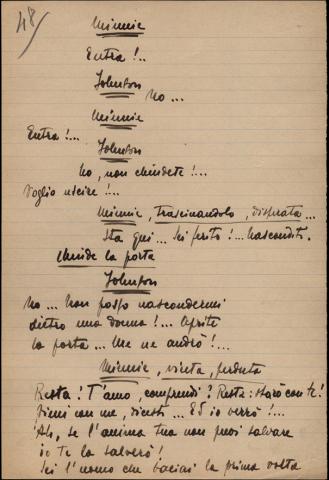 48/
Minnie
Entra!..
Johnson
No...
Minnie
Entra!...
Johnson
No, non chiudete!...
Voglio uscire!...
Minnie, trascinandolo, disperata...
Sta qui... Sei ferito!... Nasconditi.
Chiude la porta
Johnson
No... Non posso nascondermi
dietro una donna!... Aprite
la porta... Me ne andrò!...
Minnie, vinta, perduta
Resta! T'amo, comprendi? Resta: starò con te!
Vieni con me, dicesti... Ed io verrò!...
Ah, se l'anima tua non puoi salvare
io te la salverò!
Sei l'uomo che baciai la prima volta